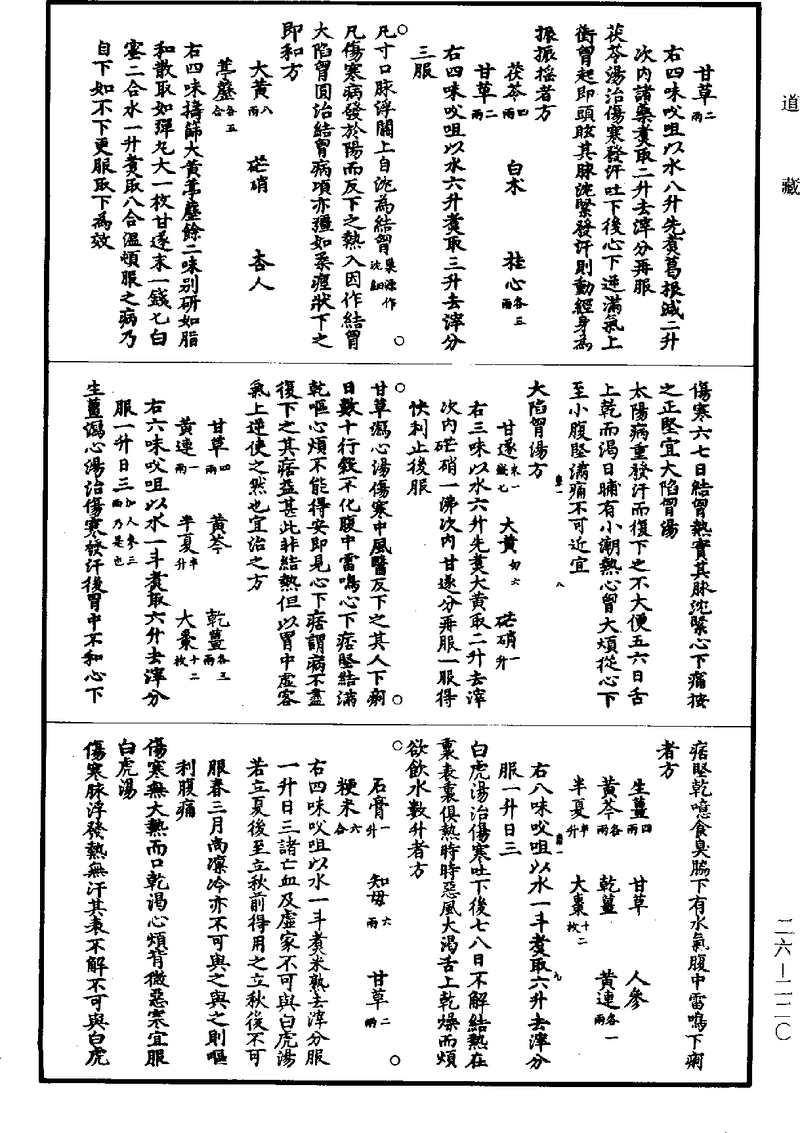 道藏
甘草二兩
右四味㕮咀以水八升先煮葛根減二升
次內諸藥煮取二升去滓分再服
茯苓湯治傷寒發汗吐下後心下逆滿氣上
衝胷起即頭眩其脉沈緊發汗則動經身為
振振摇者方
茯苓四兩 白朮 桂心各三兩
甘草二兩
右四味㕮咀以水六升煮取三升去滓分
三服
凡寸口脉浮關上自沈為結胷巢源作沈細
凡傷寒病發於陽而反下之熱入因作結胷
大陷胷圓治結胷病項亦彊如柔痓狀下之
即和方
大黃八兩 芒硝 杏人
葶藶各五合
右四味擣篩大黃葶藶餘二味别研如脂
和散取如彈丸大一枚甘遂末一錢匕白
蜜二合水一升煮取八合溫頓服之病乃
自下如不下更服取下為效
傷寒六七日結胷熱實其脉沈緊心下痛按
之正堅宜大陷胷湯
太陽病重發汗而復下之不大便五六日舌
上乾而渴日晡有小潮熱心胷大煩從心下
至小腹堅滿痛不可近宜
大陷胷湯方
甘遂末一錢匕 大黃六兩 芒硝一升
右三味以水六升先煮大黃取二升去滓
次內芒硝一沸次內甘遂分再服一服得
快利止後服
甘草瀉心湯傷寒中風醫反下之其人下痢
日數十行穀不化腹中雷鳴心下痞堅結滿
乾嘔心煩不能得安即見心下痞謂病不盡
復下之其痞益甚此非結熱但以胃中虛客
氣上逆使之然也宜治之方
甘草四兩 黃芩 乾薑各三兩
黃連一兩 半夏半升 大棗十二枚
右六味㕮咀以水一斗煮取六升去滓分
服一升日三加人參三兩乃是也
生薑瀉心湯治傷寒發汗後胃中不和心下
痞堅乾噫食臭脇下有水氣腹中雷鳴下痢
者方
生薑四兩 甘草 人參
黃芩各兩 乾薑 黃連各一兩
半夏半升 大棗十二枚
右八味㕮咀以水一斗煮取六升去滓分
服一升日三
白虎湯治傷寒吐下後七八日不解結熱在
裏表裏俱熱時時惡風大渴舌上乾燥而煩
欲飲水數升者方
石膏一升 知母六兩 甘草二兩
粳米六合
右四味㕮咀以水一斗煮米熟去滓分服
一升日三諸亡血及虛家不可與白虎湯
若立夏後至立秋前得用之立秋後不可
服春三月尚凜冷亦不可與之與之則嘔
利腹痛
傷寒無大熱而口乾渴心煩背微惡寒宜服
白虎湯
傷寒脉浮發熱無汗其表不解不可與白虎
二六—二二〇